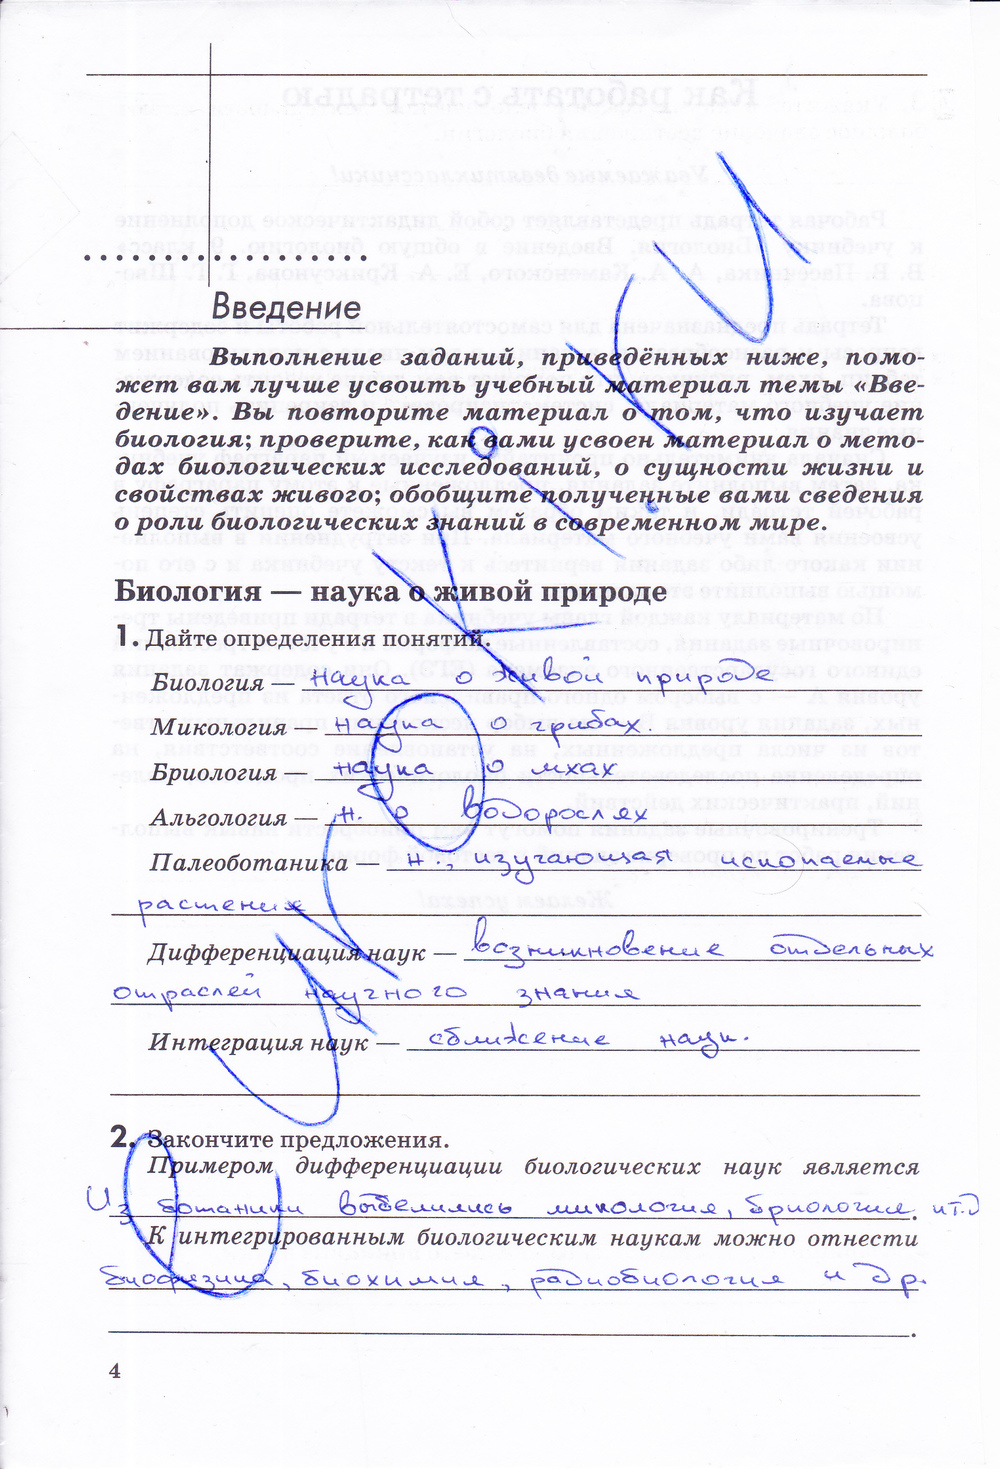 Введение
Выполнение заданий, приведённых ниже, помо-
жет вам лучше усвоить учебный материал темы «Вве-
дение». Вы повторите материал о том, что изучает
биология; проверите, как вами усвоен материал о мето-
дах биологических исследований, о сущности жизни и
свойствах живого; обобщите полученные вами сведения
о роли биологических знаний в современном мире.
Биология — наука о живой природе
1. Дайте определения понятий.
Биология — наука о живой природе
Микология — наука о грибах.
Бриология — наука о мхах
Альгология — н. о водорослях
Палеоботаника — н., изучающая ископаемые
растения
Дифференциация наук — возникновение отдельных
отраслей научного знания
Интеграция наук — сближение наук.
2. Закончите предложения.
Примером дифференциации биологических наук является
Из ботаники выделились микология, бриология и т.д.
К интегрированным биологическим наукам можно отнести
биофизика, биохимия, радиобиология и др.
4